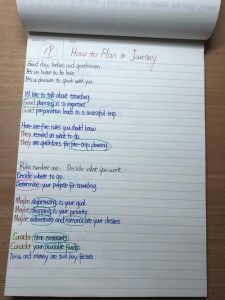 How to Plan a Journey
Good day, ladies and gentlemen.
It's an honor to be here.
It's a pleasure to speak with you.
I'd like to talk about traveling.
Good planning is so important.
Good preparation leads to a successful trip.
Here are five rules you should know.
They remind us what to do.
They are guidelines for pre-trip planning.
Rule number one: Decide what you want.
Decide where to go.
Determine your purpose for traveling.
Maybe sightseeing is your goal.
Maybe shopping is your priority.
Maybe adventures and romance are your desires.
Consider time constraints.
Consider your available funds.
Time and money are two key factors.